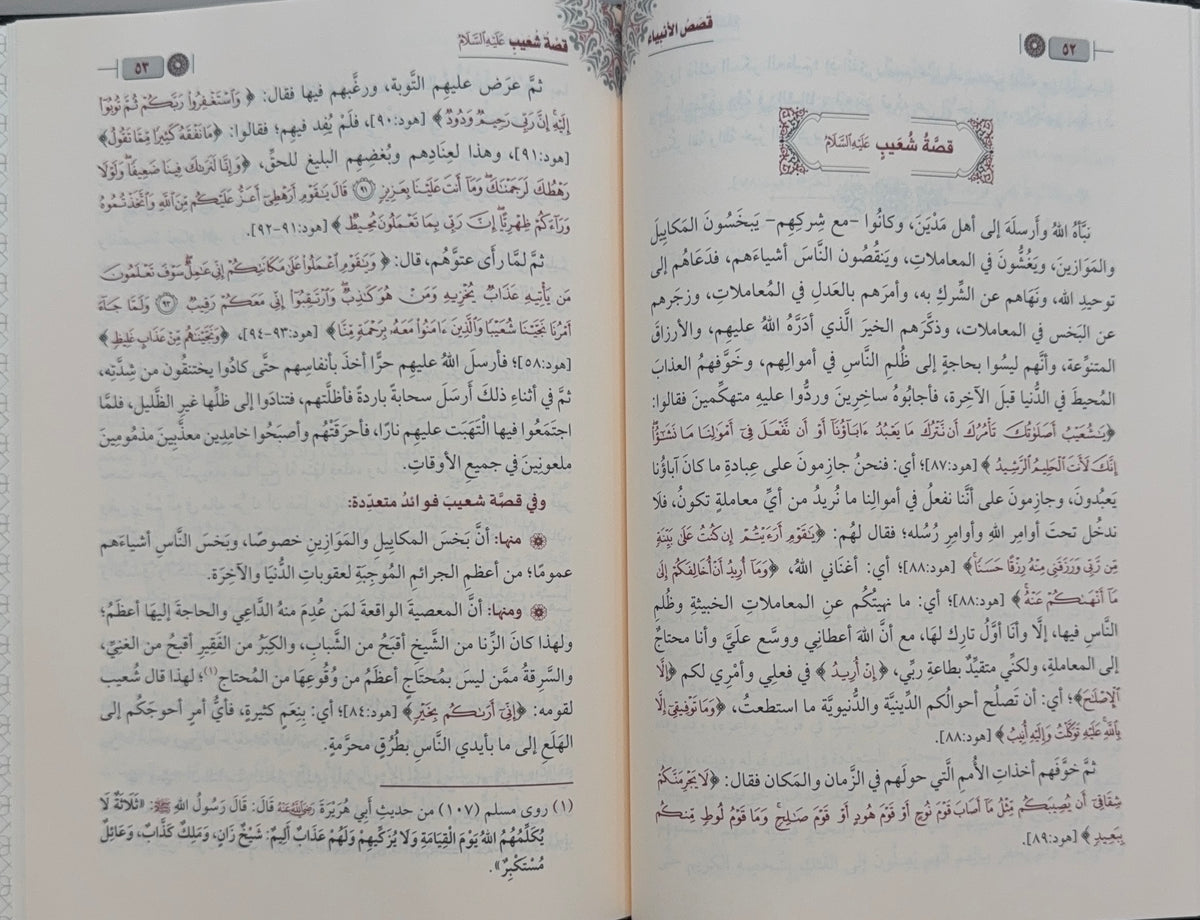 ٥٢
قصص الأنبياء
قصَّةُ شُعَيبٍ عَلَيْهِ السَّلَامُ
نبَّأهُ اللهُ وأرسلَهَ إلى أهل مَدْيَنَ، وكانُوا –مع شِركِهِم– يَبخَسُونَ المَكاييلَ
والمَوازينَ، ويَغُشُّونَ في المعاملاتِ، ويَنقُصُون النَّاسَ أشياءَهم، فدَعَاهُم إلى
توحيدِ الله، ونَهَاهم عن الشِّركِ به، وأمرَهم بالعَدلِ في المُعاملاتِ، وزجَرهم
عن البَخس في المعاملات، وذكَّرَهم الخيرَ الَّذي أدَرَّهُ اللهُ عليهِم، والأرزاقَ
المتنوِّعة، وأنَّهم ليسُوا بحاجةٍ إلى ظُلمِ النَّاسِ في أموالِهم، وخَوَّفهمُ العذابَ
المُحيطَ في الدُّنيا قبلَ الآخِرة، فأجابُوهُ ساخِرينَ وردُّوا عليهِ متهكِّمينَ فقالوا:
﴿يَـٰشُعَيْبُ أَصَلَوٰتُكَ تَأْمُرُكَ أَن نَّتْرُكَ مَا يَعْبُدُ ءَابَآؤُنَآ أَوْ أَن نَّفْعَلَ فِىٓ أَمْوَٰلِنَا مَا نَشَـٰٓؤُا۟ۖ
إِنَّكَ لَأَنتَ ٱلْحَلِيمُ ٱلرَّشِيدُ﴾ [هود:٨٧]؛ أي: فنحنُ جازِمونَ على عِبادةِ ما كانَ آباؤُنا
يَعبُدونَ، وجازِمونَ على أنَّنا نفعلُ في أموالِنا ما نُريدُ من أيِّ معاملةٍ تكونُ، فلَا
ندخُل تحتَ أوامِر اللهِ وأوامِر رُسُله؛ فقال لهُم: ﴿يَـٰقَوْمِ أَرَءَيْتُمْ إِن كُنتُ عَلَىٰ بَيِّنَةٍ
مِّن رَّبِّى وَرَزَقَنِى مِنْهُ رِزْقًا حَسَنًاۚ﴾ [هود:٨٨]؛ أي: أغنَاني اللهُ، ﴿وَمَآ أُرِيدُ أَنْ أُخَالِفَكُمْ إِلَىٰ
مَآ أَنْهَىٰكُمْ عَنْهُۚ﴾ [هود:٨٨]؛ أي: ما نهيتُكُم عنِ المعاملاتِ الخبيثةِ وظُلمِ
النَّاسِ فيها، إلَّا وأنا أوَّلُ تارِك لهَا، مع أنَّ اللهَ أعطانِي ووسَّع علَيَّ وأنا محتاجٌ
إلى المعاملةِ، ولكنِّي متقيِّدٌ بطاعةِ ربِّي، ﴿إِنْ أُرِيدُ﴾ في فعلِي وأمْرِي لكم ﴿إِلَّا
ٱلْإِصْلَـٰحَ﴾؛ أي: أن تَصلُح أحوالُكم الدِّينيَّة والدُّنيويَّة ما استطعتُ، ﴿وَمَا تَوْفِيقِىٓ إِلَّا
بِٱللَّهِۚ عَلَيْهِ تَوَكَّلْتُ وَإِلَيْهِ أُنِيبُ﴾ [هود:٨٨].
ثمَّ خوَّفَهم أخذاتِ الأُممِ الَّتي حولَهم في الزَّمان والمَكان فقال: ﴿لَا يَجْرِمَنَّكُمْ
شِقَاقِىٓ أَن يُصِيبَكُم مِّثْلُ مَآ أَصَابَ قَوْمَ نُوحٍ أَوْ قَوْمَ هُودٍ أَوْ قَوْمَ صَـٰلِحٍۚ وَمَا قَوْمُ لُوطٍ مِّنكُم
بِبَعِيدٍ﴾ [هود:٨٩].
قصة شعيب عَلَيْهِ السَّلَامُ
٥٣
ثمَّ عرَض عليهِم التَّوبة، ورغَّبهم فيها فقال: ﴿وَٱسْتَغْفِرُوا۟ رَبَّكُمْ ثُمَّ تُوبُوٓا۟
إِلَيْهِۚ إِنَّ رَبِّى رَحِيمٌ وَدُودٌ﴾ [هود:٩٠]، فلَمْ يُفِد فيهِم؛ فقالوا: ﴿مَا نَفْقَهُ كَثِيرًا مِّمَّا تَقُولُ﴾
[هود:٩١]، وهذا لعِنادِهم وبُغضِهِم البليغِ للحقِّ، ﴿وَإِنَّا لَنَرَىٰكَ فِينَا ضَعِيفًاۖ وَلَوْلَا
رَهْطُكَ لَرَجَمْنَـٰكَۖ وَمَآ أَنتَ عَلَيْنَا بِعَزِيزٍ ٩١ قَالَ يَـٰقَوْمِ أَرَهْطِىٓ أَعَزُّ عَلَيْكُم مِّنَ ٱللَّهِ وَٱتَّخَذْتُمُوهُ
وَرَآءَكُمْ ظِهْرِيًّاۖ إِنَّ رَبِّى بِمَا تَعْمَلُونَ مُحِيطٌ﴾ [هود:٩١-٩٢].
ثمَّ لمَّا رأى عتوَّهُم، قال: ﴿وَيَـٰقَوْمِ ٱعْمَلُوا۟ عَلَىٰ مَكَانَتِكُمْ إِنِّى عَـٰمِلٌۖ سَوْفَ تَعْلَمُونَ
مَن يَأْتِيهِ عَذَابٌ يُخْزِيهِ وَمَنْ هُوَ كَـٰذِبٌۖ وَٱرْتَقِبُوٓا۟ إِنِّى مَعَكُمْ رَقِيبٌ ٩٣ وَلَمَّا جَآءَ
أَمْرُنَا نَجَّيْنَا شُعَيْبًا وَٱلَّذِينَ ءَامَنُوا۟ مَعَهُۥ بِرَحْمَةٍ مِّنَّا﴾ [هود:٩٣-٩٤]، ﴿وَنَجَّيْنَـٰهُم مِّنْ عَذَابٍ غَلِيظٍ﴾
[هود:٥٨]؛ فأرسلَ اللهُ عليهِم حرًّا أخذَ بأنفاسِهم حتَّى كادُوا يختنقُون من شِدَّتِه،
ثمَّ في أثناءِ ذلكَ أرسَلَ سحابةً باردةً فأظلَّتهم، فتنادَوا إلى ظلِّها غيرِ الظَّليل، فلمَّا
اجتمَعُوا فيها الْتَهبَت عليهِم نارًا، فأحرَقَتْهُم وأصبَحُوا خامِدِين معذَّبِين مذمُومِينَ
ملعونِينَ في جميعِ الأوقاتِ.
وفي قصَّة شعيبَ فوائدُ متعدِّدة:
منها: أنَّ بَخسَ المكايِيلِ والمَوازينِ خصوصًا، وبَخسَ النَّاسِ أشياءَهم
عمومًا؛ من أعظمِ الجرائمِ المُوجِبةِ لعقوباتِ الدُّنيَا والآخِرَة.
ومنها: أنَّ المعصيةَ الواقعةَ لمَن عُدِمَ منهُ الدَّاعِي والحاجةَ إليهَا أعظَمُ؛
ولهذا كانَ الزِّنا من الشَّيخِ أقبَحُ من الشَّبابِ، والكِبرُ من الفَقِيرِ أقبحُ من الغنيِّ،
والسَّرِقةُ ممَّن ليسَ بمُحتاجٍ أعظَم من وُقُوعِهَا من المُحتاج(١)؛ لهذا قال شُعيب
لقومِه: ﴿إِنِّىٓ أَرَىٰكُم بِخَيْرٍ﴾ [هود:٨٤]؛ أي: بنِعَمٍ كثيرةٍ، فأيُّ أمرٍ أحوجَكُم إلى
الهَلَعِ إلى ما بأيدي النَّاسِ بطُرُقٍ محرَّمةٍ.
(١) روى مسلم (١٠٧) من حديثِ أبِي هُرَيْرَةَ رَضِيَ اللهُ عَنْهُ قَالَ: قَالَ رَسُولُ اللهِ ﷺ: «ثَلَاثَةٌ لَا
يُكَلِّمُهُمُ اللهُ يَوْمَ الْقِيَامَةِ وَلَا يُزَكِّيهِمْ وَلَهُمْ عَذَابٌ أَلِيمٌ: شَيْخٌ زَانٍ، وَمَلِكٌ كَذَّابٌ، وَعَائِلٌ
مُسْتَكْبِرٌ».